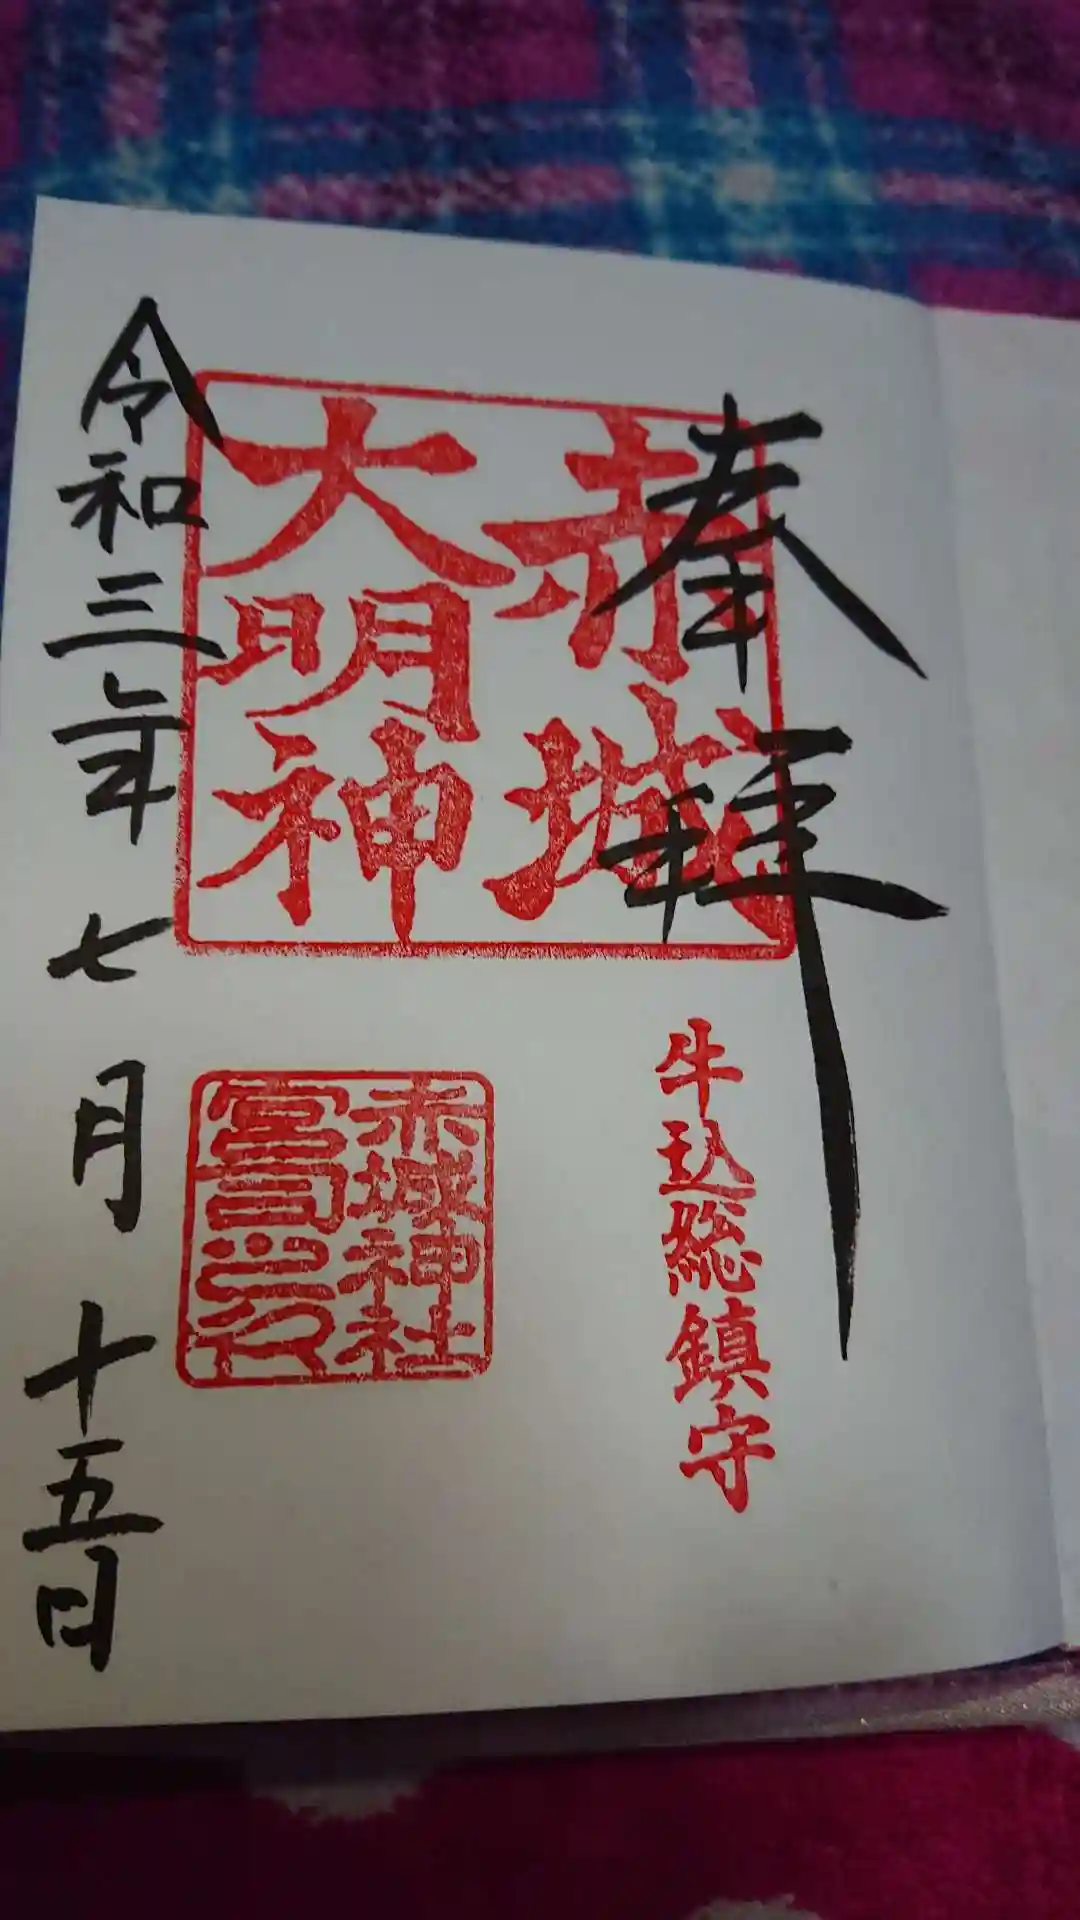 奉拝
赤城
大明神
牛込総鎮守
赤城神社
宮司之印
令和三年七月十五日